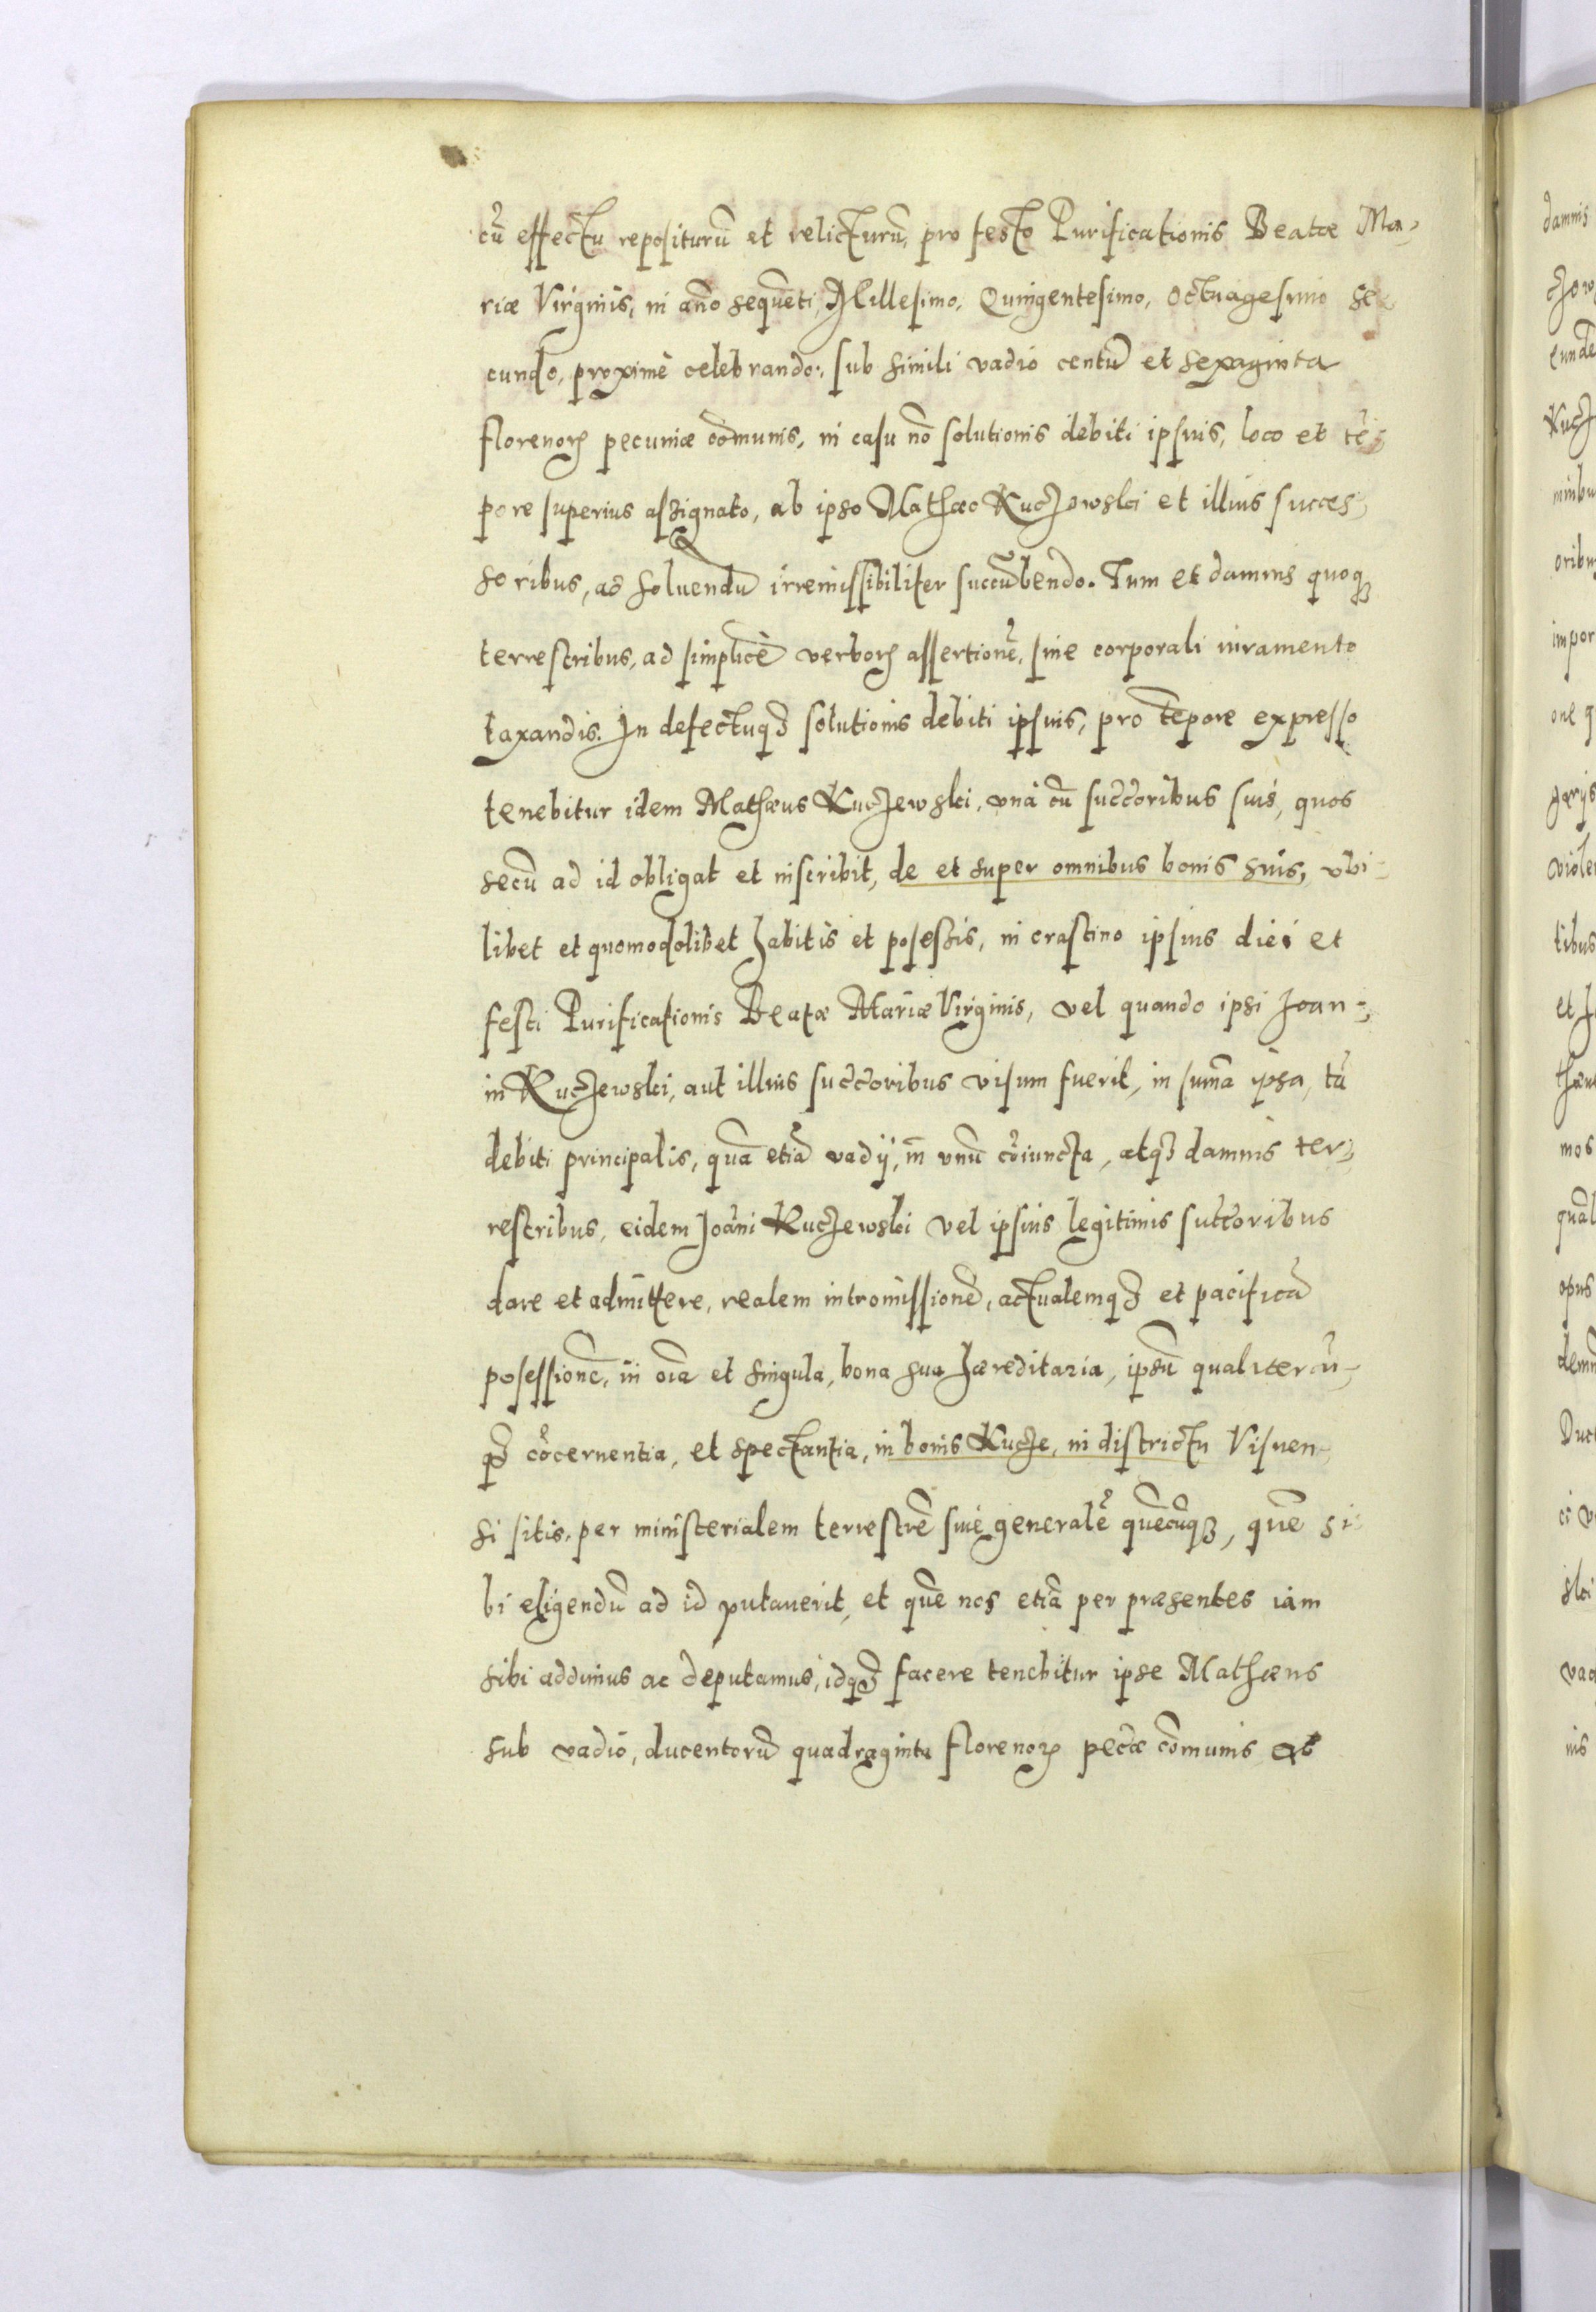 cũ effectu repositurũ et relicturũ, pro festo Purificationis Beatæ Ma-
riæ Virginis, in año sequẽti, Millesimo, Quingentesimo, Octuagesimo se-
cundo, proximè celebrando, sub simili vadio centũ et sexaginta
florenorꝝ pecuniæ cõmunis, in casu nõ solutionis debiti ipsius, loco et tẽ-
pore superius assignato, ab ipso Mathæo Kuczowski et illius succes-
soribus, ad soluendũ irremissibiliter succũbendo. Tum et damnis quoqꝫ
terrestribus, ad simplicẽ verborꝝ assertionẽ, sine corporali iuramento
taxandis. In defectuqꝫ solutionis debiti ipsius, pro tẽpore expresso
tenebitur idem Mathæus Kuczewski, vnà cũ succ̃oribus suis, quos
secũ ad id obligat et inscribit, de et super omnibus bonis suis, vbi-
libet et quomodolibet habitis et posessis, in crastino ipsius diei et
festi Purificationis Beatæ Mariæ Virginis, vel quando ipsi Joan-
ni Kuczewski, aut illius succ̃oribus visum fuerit, in sum̃a ipsa, tã
debiti principalis, quã etiã vadij, in vnũ cõiuncta, atqꝫ damnis ter-
restribus, eidem Joãni Kuczewski vel ipsius legitimis succ̃oribus
dare et admittere, realem intromissionẽ, actualemqꝫ et pacificã
posessionẽ, in oĩa et singula, bona sua hæreditaria, ipsũ qualitercũ-
qꝫ cõcernentia, et spectantia, in bonis Kucze, in districtu Visnen-
si sitis, per ministerialem terrestrẽ siue generalẽ quẽcũqꝫ, quẽ si-
bi eligendũ ad id putauerit, et quẽ nos etiã per præsentes iam
sibi addimus ac deputamus, idqꝫ facere tenebitur ipse Mathæus
sub vadio, ducentorũ quadraginta florenorꝝ pec̃æ cõmunis ac